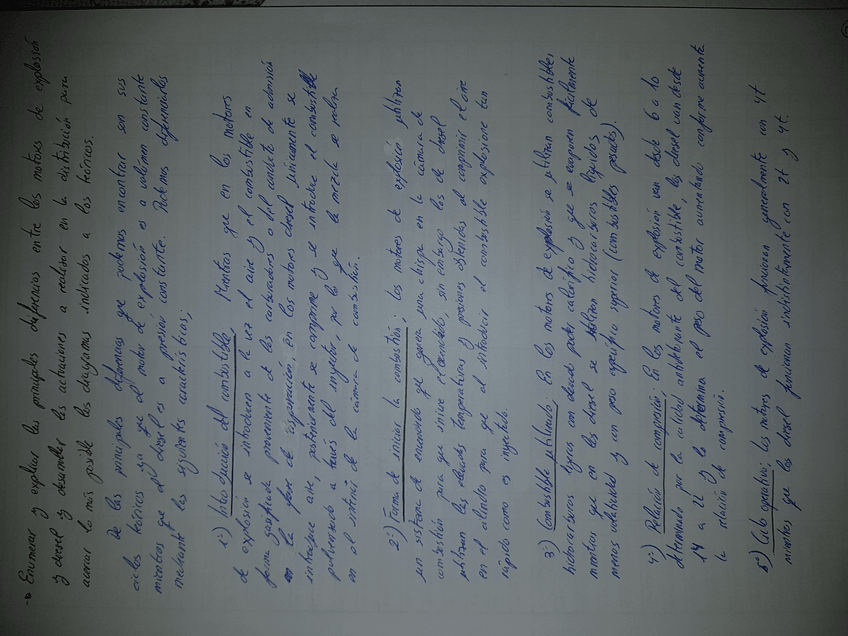 → Enumerar y explicar las principales diferencias entre los motores de explosión
y diesel y desarrollar las actuaciones a realizar en la distribución para
acercar lo más posible los diagramas indicados a los teóricos.
de las principales diferencias que podemos encontrar son sus
ciclos teóricos ya que el motor de explosión es a volumen constante
mientras que el diesel es a presión constante. Podemos
mediante las siguientes características;
1º) Introducción del combustible; Mientras que en los motores
de explosión se introducen a la vez el aire y el combustible en
forma gasificada proveniente de los carburadores o del conducto de admisión
en la fase de aspiración, en los motores diesel únicamente se
introduce aire, posteriormente se comprime y se introduce el combustible
pulverizado a través del inyector, por lo que la mezcla se realiza
en el interior de la cámara de combustión.
2º) Forma de iniciar la combustión; los motores de explosión utilizan
un sistema de encendido que genera una chispa en la cámara de
combustión para que inicie el encendido, sin embargo los de diesel
utilizan las elevadas temperaturas y presiones obtenidas al comprimir el aire
en el cilindro para que al introducir el combustible explosione tan
rápido como es inyectado.
3º) Combustible utilizado; En los motores de explosión se utilizan combustibles
hidrocarburos ligeros con elevado poder calorífico y que se evaporen fácilmente
mientras que en los diesel se utilizan hidrocarburos líquidos de
menos volatilidad y un peso específico superior (combustibles pesados).
4º) Relación de compresión; En los motores de explosión van desde 6 a 10
determinado por la calidad antidetonante del combustible, los diesel van desde
14 a 22 y lo determina el peso del motor aumentando conforme aumente
la relación de compresión.
5º) Ciclo operativo; los motores de explosión funcionan generalmente con 4t
mientras que los diesel funcionan indistintamente con 2t y 4t.